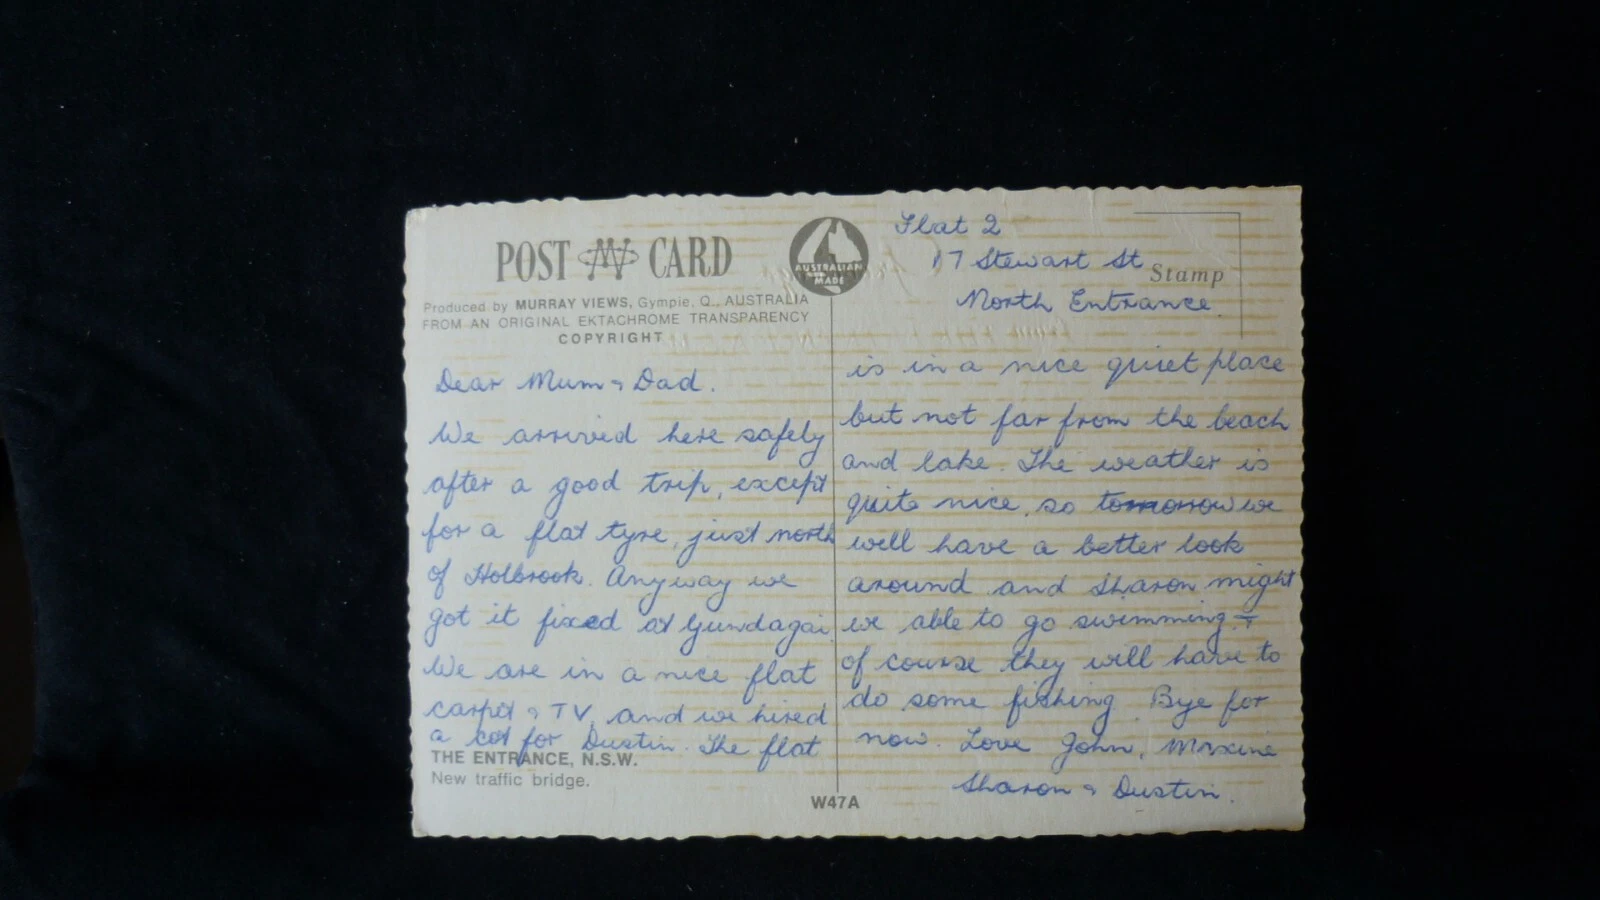 POST CARD
AUSTRALIAN
MADE
Produced by MURRAY VIEWS, Gympie, Q., AUSTRALIA
FROM AN ORIGINAL EKTACHROME TRANSPARENCY
COPYRIGHT
Dear Mum & Dad.
We arrived here safely
after a good trip, except
for a flat tyre, just north
of Holbrook. Anyway we
got it fixed at Gundagai.
We are in a nice flat
carpet & TV, and we hired
a cot for Dustin. The flat
THE ENTRANCE, N.S.W.
New traffic bridge.
Flat 2
17 Stewart St
Stamp
North Entrance.
is in a nice quiet place
but not far from the beach
and lake. The weather is
quite nice, so tomorrow we
will have a better look
around and Sharon might
we able to go swimming. &
of course they will have to
do some fishing. Bye for
now. Love John, Maxine
Sharon & Dustin.
W47A